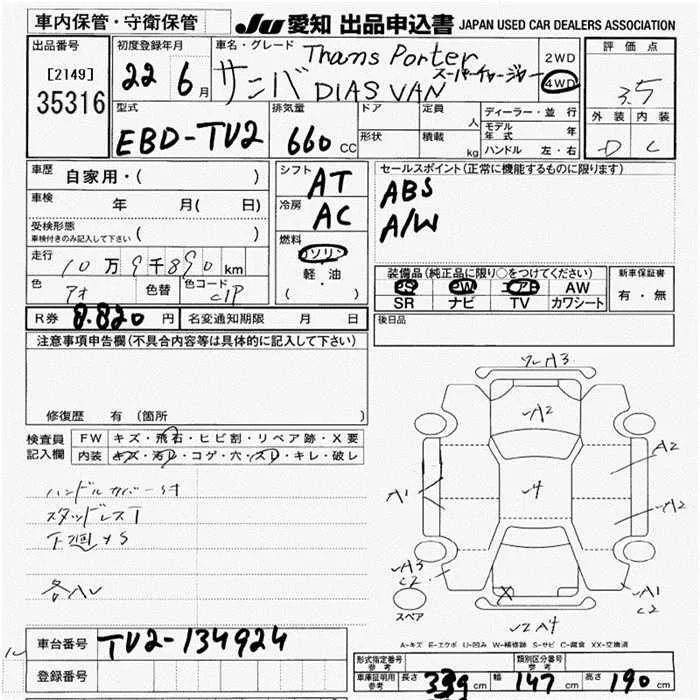 車内保管・守衛保管
JU 愛知 出品申込書 JAPAN USED CAR DEALERS ASSOCIATION
出品番号
[2149]
35316
初度登録年月
22 6月
車名・グレード
Thans Porter
サンバ DIAS VAN スーパーチャージャー
2WD
4WD
評価点
3.5
外装 内装
D C
型式
EBD-TV2
排気量
660 cc
ドア
形状
定員 人
積載 kg
ディーラー・並行
モデル年式 年
ハンドル 左・右
車歴 自家用・( )
車検 年 月( 日)
受検形態
車検付きのみ記入して下さい ( )
走行 10万9千890km
色 アオ 色替 色コード C1P
シフト AT
冷房 AC
燃料
ガソリン
軽・油
( )
セールスポイント(正常に機能するものに限ります)
ABS
A/W
装備品(純正品に限り○をつけてください)
PS PW エアB AW
SR ナビ TV カワシート
新車保証書
有・無
R券 8.820円 名変通知期限 月 日
後日品
注意事項申告欄(不具合内容等は具体的に記入して下さい)
修復歴 有 (箇所 )
検査員記入欄
FW キズ・飛石・ヒビ割・リペア跡・X要
内装 キズ・汚レ・コゲ・穴・スレ・キレ・破レ
ハンドルカバー付
スタッドレスT
下廻サS
各AU
ワレA3
A2
A1
A2
A2
A3
C2
A1
C2
X
スペア
A-キズ E-エクボ U-凹み W-補修跡 S-サビ C-腐食 XX-交換済
車台番号 TV2-134924
登録番号
形式指定番号
参考
類別区分番号
参考
車庫証明用
参考
長さ 339cm 幅 147cm 高さ 190cm